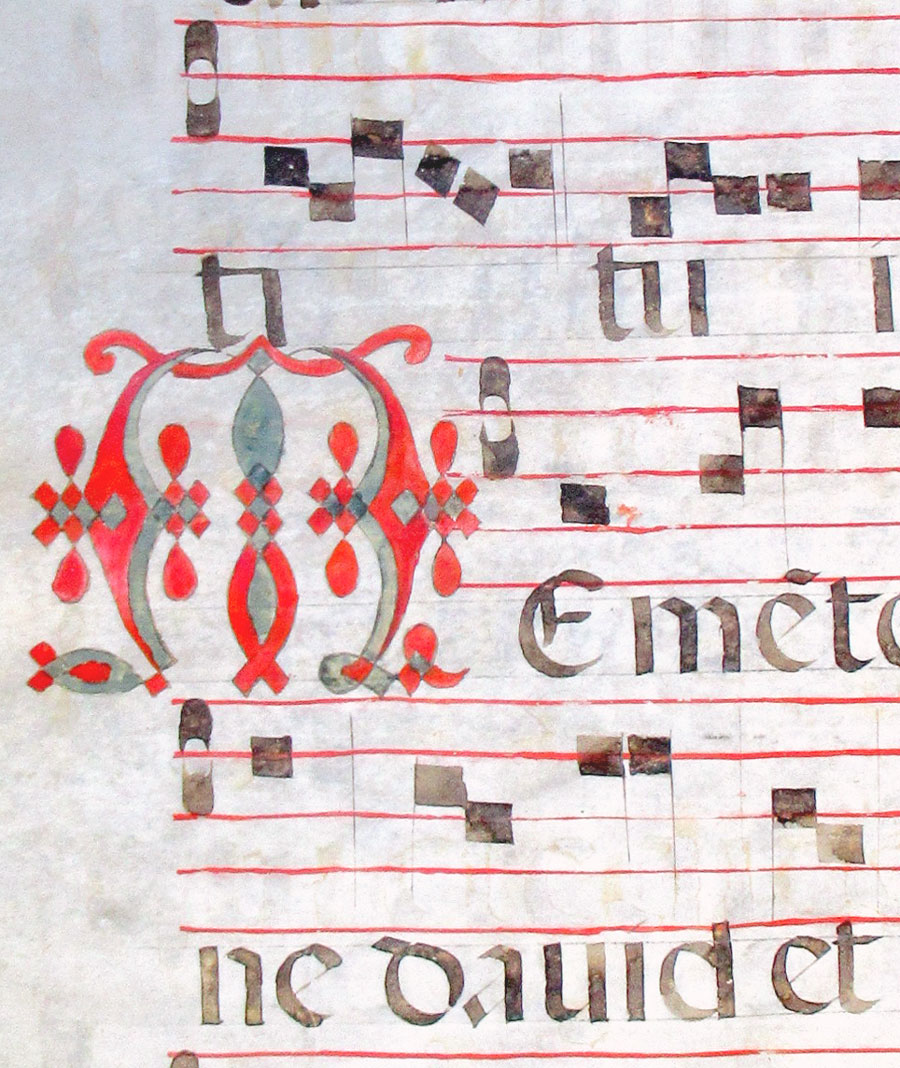 tı tuı
MEmēto
ne dauıd et